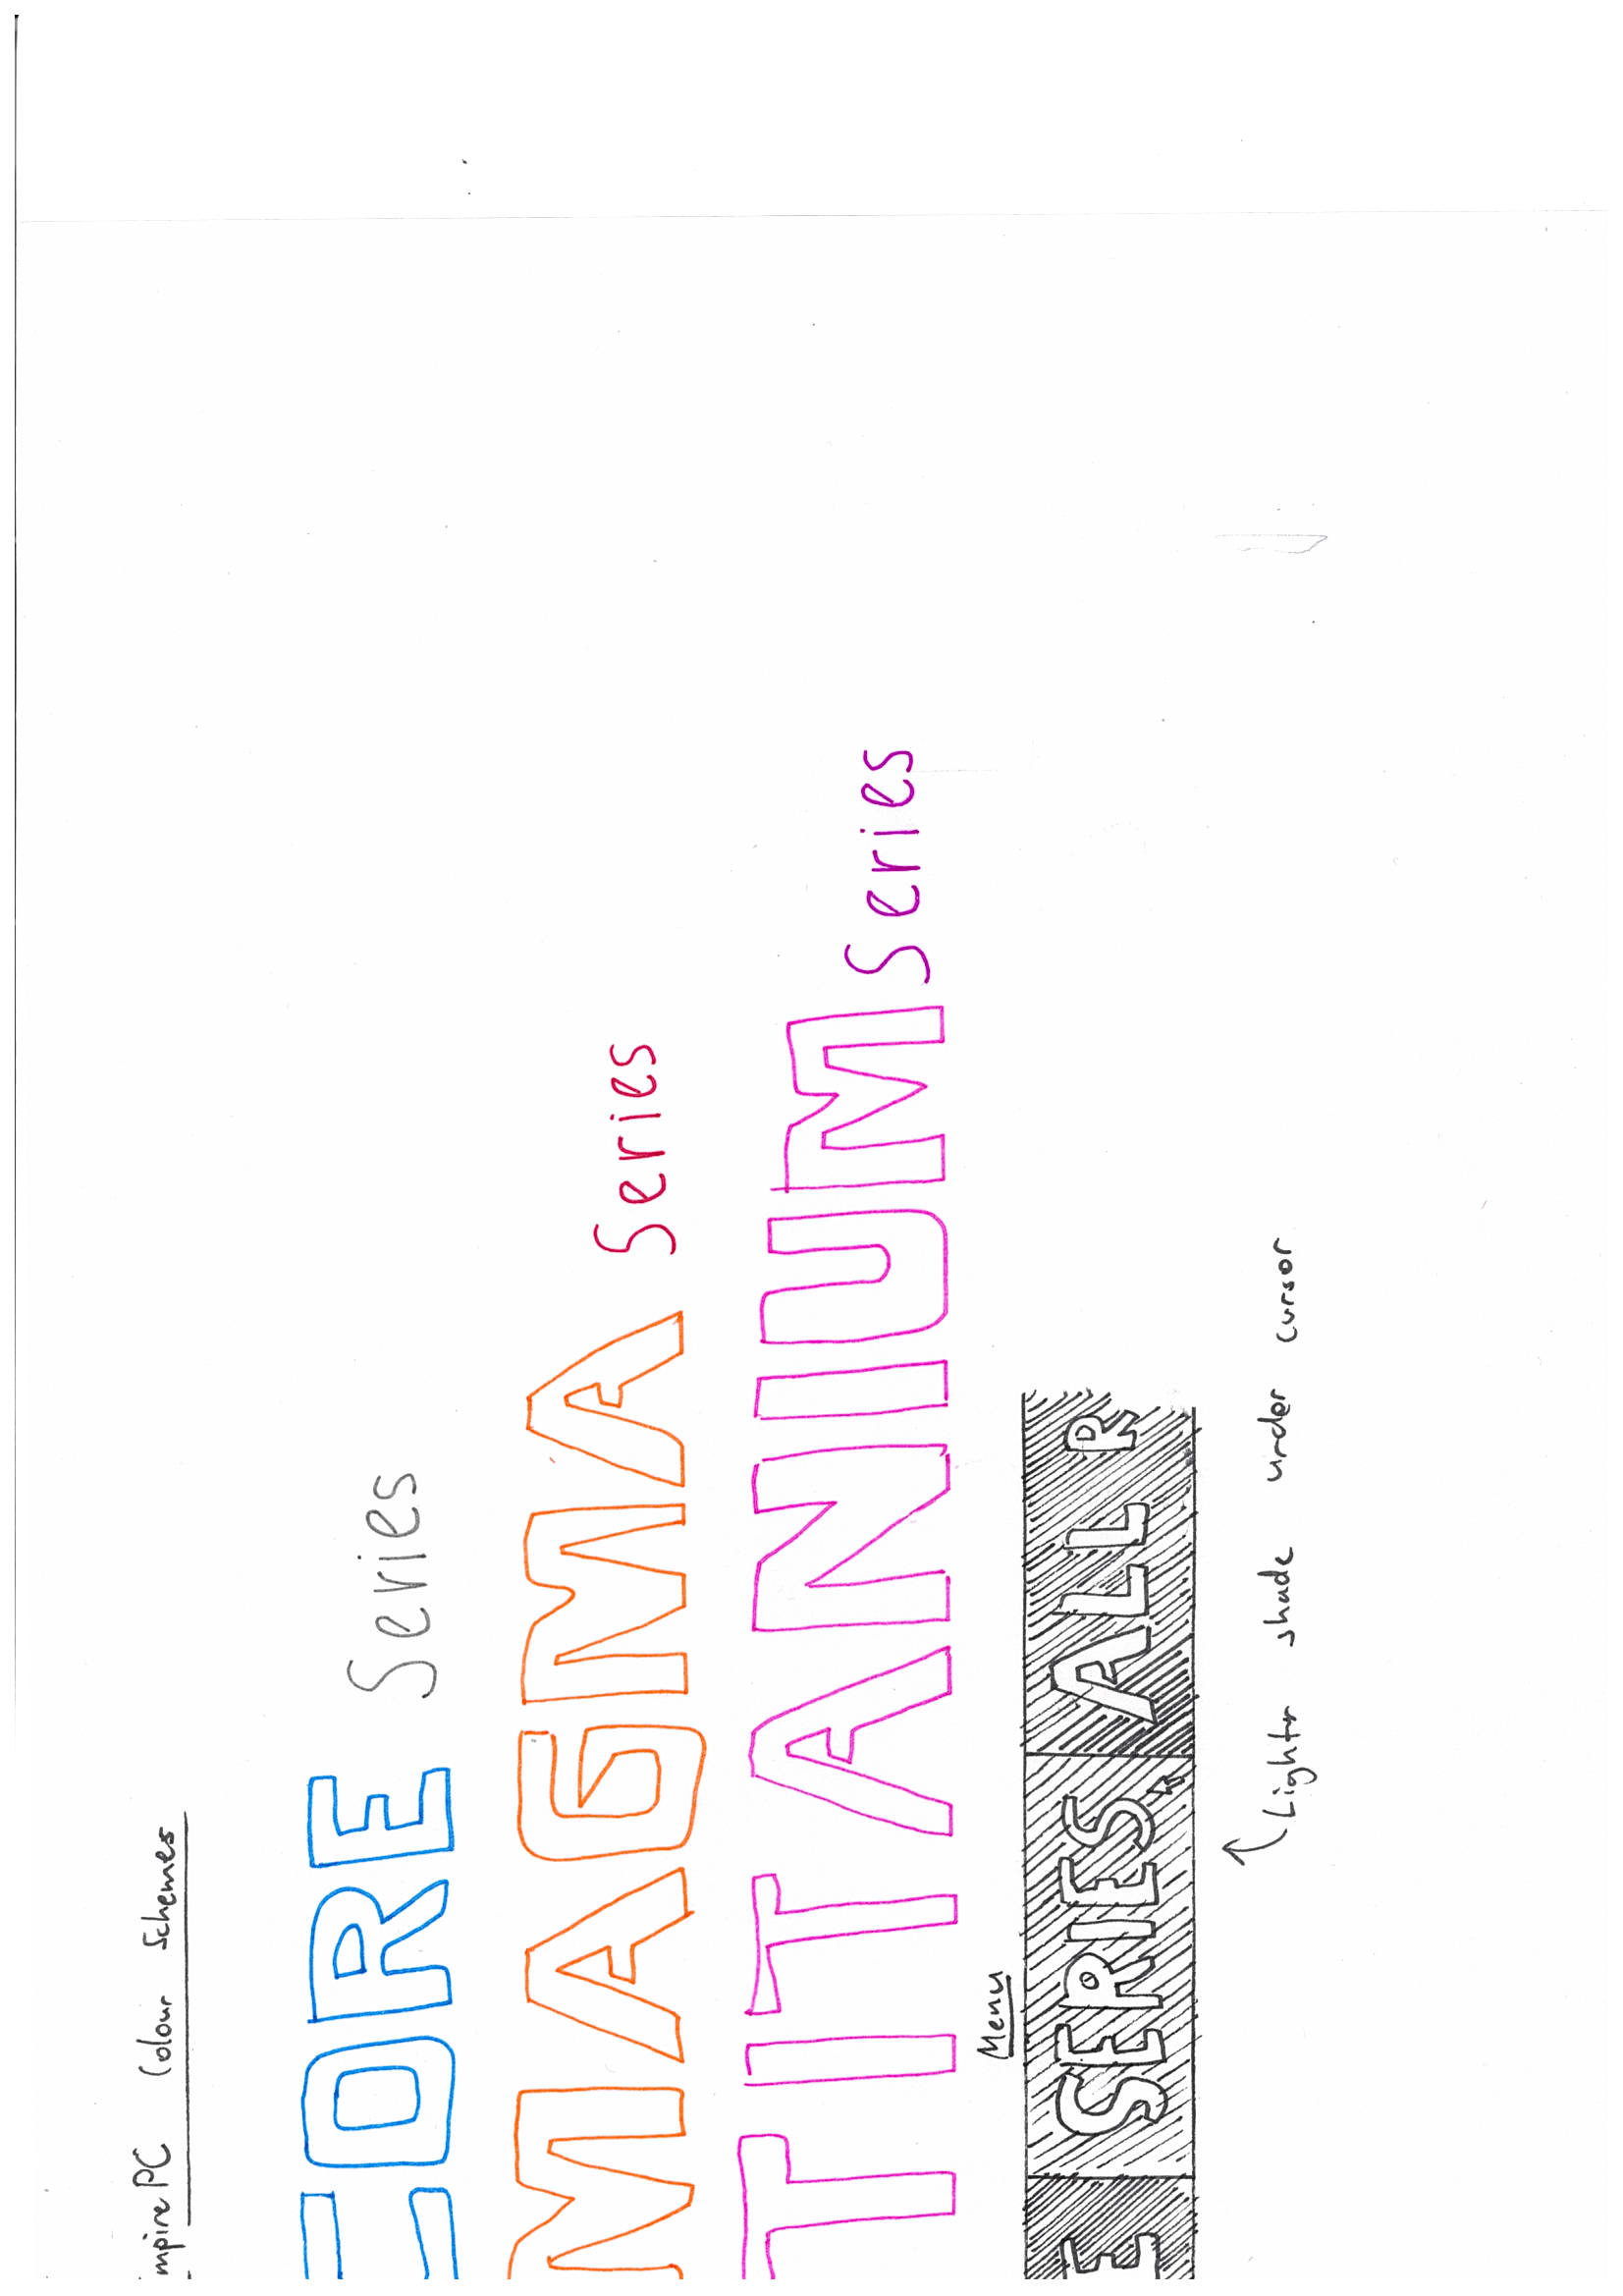 mpirePC Colour Schemes
CORE Series
MAGMA Series
TITANIUM Series
Menu
E SERIES ALL R
Lightr shade under cursor